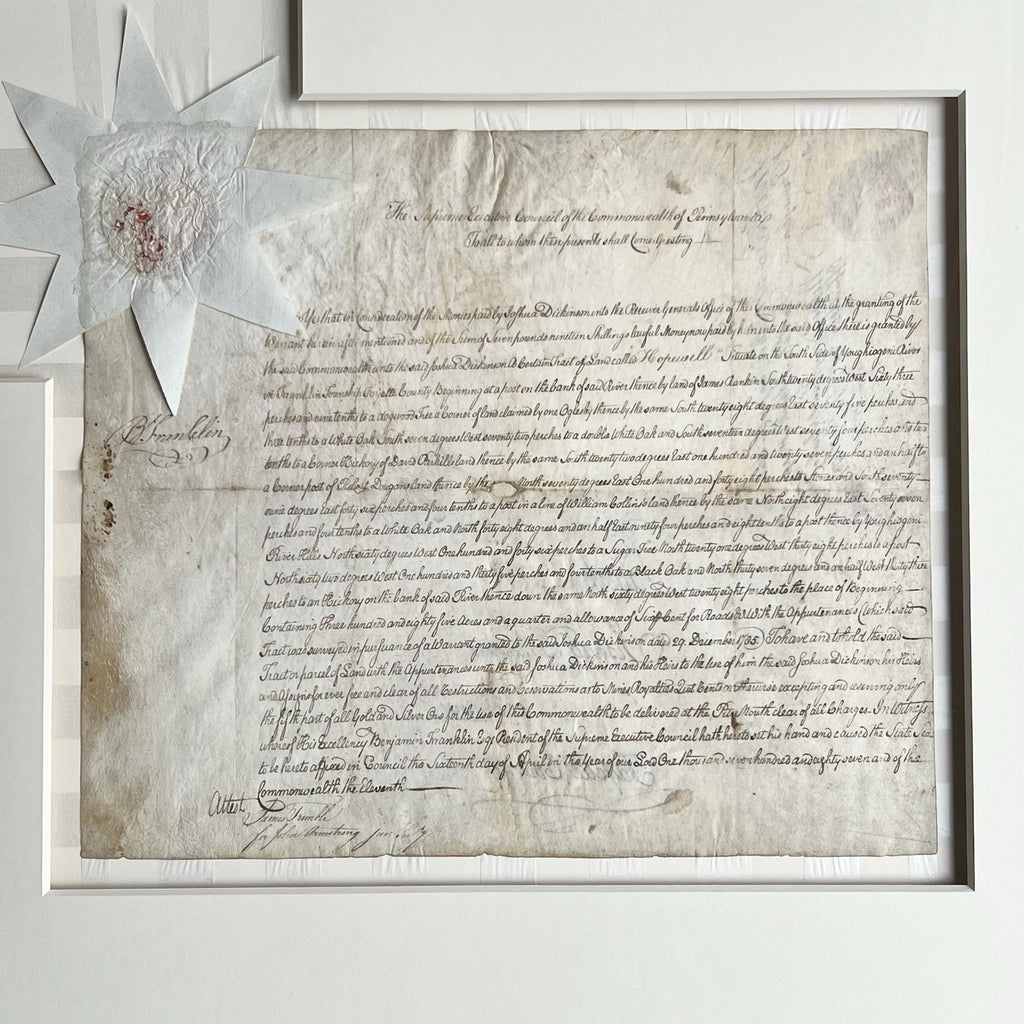 The Supreme Executive Council of the Commonwealth of Pennsylvania
To all to whom these presents shall Come Greeting
that in Consideration of the Monies paid by Joshua Dickinson into the Receiver Generals Office of this Commonwealth at the granting of the
Warrant herein after mentioned and of the Sum of Seven pounds nineteen Shillings lawful Money now paid by him into the said Office there is granted by
the said Commonwealth unto the said Joshua Dickinson A Certain Tract of Land called "Hopewell" Situate on the South Side of Youghiogeni River
in Franklin Township Fayette County Beginning at a post on the bank of said River thence by land of James Rankin South twenty degrees West Sixty three
perches and nine tenths to a dogwood Tree a Corner of land claimed by one Oglesby thence by the same South twenty eight degrees East seventy five perches and
three tenths to a White Oak South seven degrees West seventy two perches to a double White Oak and South seventeen degrees West seventy four perches and two
tenths to a Corner Hickory of David Parkhills land thence by the same South twenty two degrees East one hundred and twenty seven perches and an half to
a Corner post of Dugans land thence by the North seventy degrees East One hundred and forty eight perches to Stones and South seventy
nine degrees East forty six perches and four tenths to a post in a line of William Collins's land thence by the same North eight degrees East Seventy seven
perches and four tenths to a White Oak and North forty eight degrees and an half East ninety four perches and eight tenths to a post thence by Youghiogeni
River Hills North sixty degrees West One hundred and forty six perches to a Sugar Tree North twenty one degrees West thirty eight perches to a post
North sixty two degrees West One hundred and thirty five perches and four tenths to a Black Oak and North thirty seven degrees and an half West thirty three
perches to an Hickory on the bank of said River thence down the same North sixty degrees West twenty eight perches to the place of Beginning
Containing Three hundred and eighty five Acres and a quarter and allowance of Six P Cent for Roads &c With the Appurtenances (Which said
Tract was surveyed in pursuance of a Warrant granted to the said Joshua Dickinson dated 29. December 1785) To have and to hold the said
Tract or parcel of Land with the Appurtenances unto the said Joshua Dickinson and his Heirs to the Use of him the said Joshua Dickinson his Heirs
and Assigns for ever free and clear of all Restrictions and Reservations as to Mines Royalties Quit Rents or otherwise excepting and reserving only
the fifth part of all Gold and Silver Ore for the use of this Commonwealth to be delivered at the Pits Mouth clear of all Charges. In Witness
whereof His Excellency Benjamin Franklin Esqr President of the Supreme Executive Council hath hereto set his hand and caused the State Seal
to be hereto affixed in Council this Sixteenth day of April in the Year of our Lord One thousand seven hundred and eighty seven and of the
Commonwealth the Eleventh
B Franklin
Attest
James Trimble
for John Armstrong Junr Secy